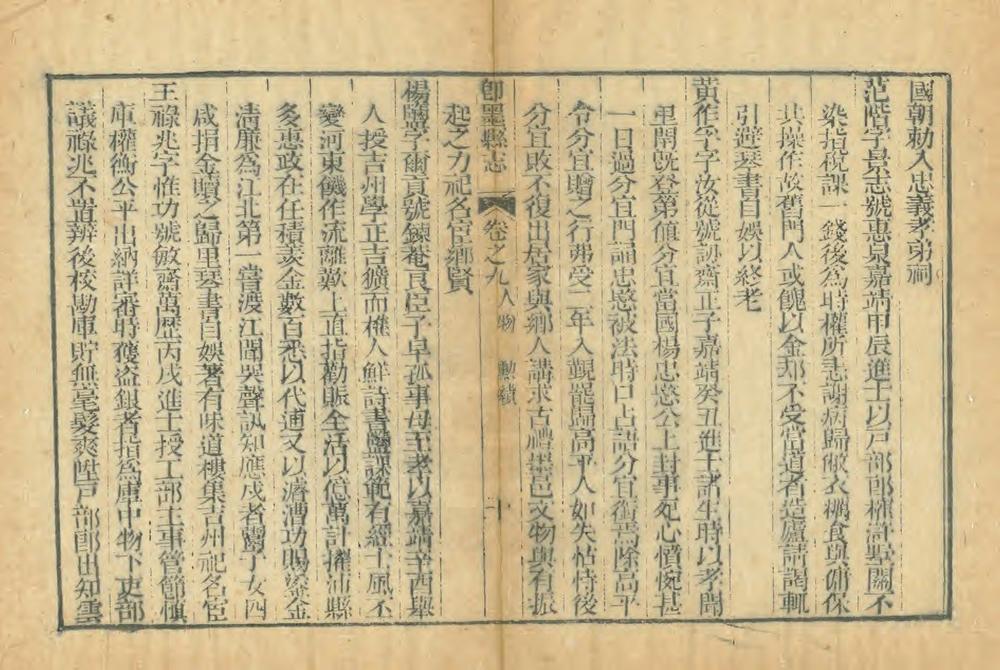 國朝勅入忠義孝弟祠
范階字景志號惠泉嘉靖甲辰進士以戸部郎榷滸墅關不
染指稅課一錢後為時權所忌謝病歸敝衣糲食與傭保
共操作故舊門人或餽以金却不受當道者造廬請謁輒
引避琴書自娛以終老
黃作孚字汝從號訒齋正子嘉靖癸丑進士諸生時以孝聞
里閈既登第値分宜當國楊忠愍公上封事死心憤惋甚
一日過分宜門誦忠愍被法時口占語分宜銜焉除高平
令分宜贈之行弗受二年入覲罷歸高平人如失怙恃後
分宜敗不復出居家與鄉人講求古禮墨邑文物與有振
即墨縣志 卷之九 人物 勲績 十一
起之力祀名宦鄉賢
楊鹽字爾貢號鍊菴良臣子早孤事母至孝以嘉靖辛酉舉
人授吉州學正吉獷而樵人鮮詩書鹽課範有經士風丕
變河東饑作流離歎上直指勸賑全活以億萬計擢沛縣
多惠政在任積羨金數百悉以代逋又以濬漕功賜鏹金
清廉為江北第一嘗渡江聞哭聲訊知應戍者鬻子女四
咸捐金贖之歸里琴書自娛著有味道樓集吉州祀名宦
王祿兆字惟功號敏齋萬歷丙戌進士授工部主事管節愼
庫權衡公平出納詳審時獲盜銀者指為庫中物下吏部
議祿兆不置辨後校勘庫貯無毫髮爽陞戸部郎出知雲